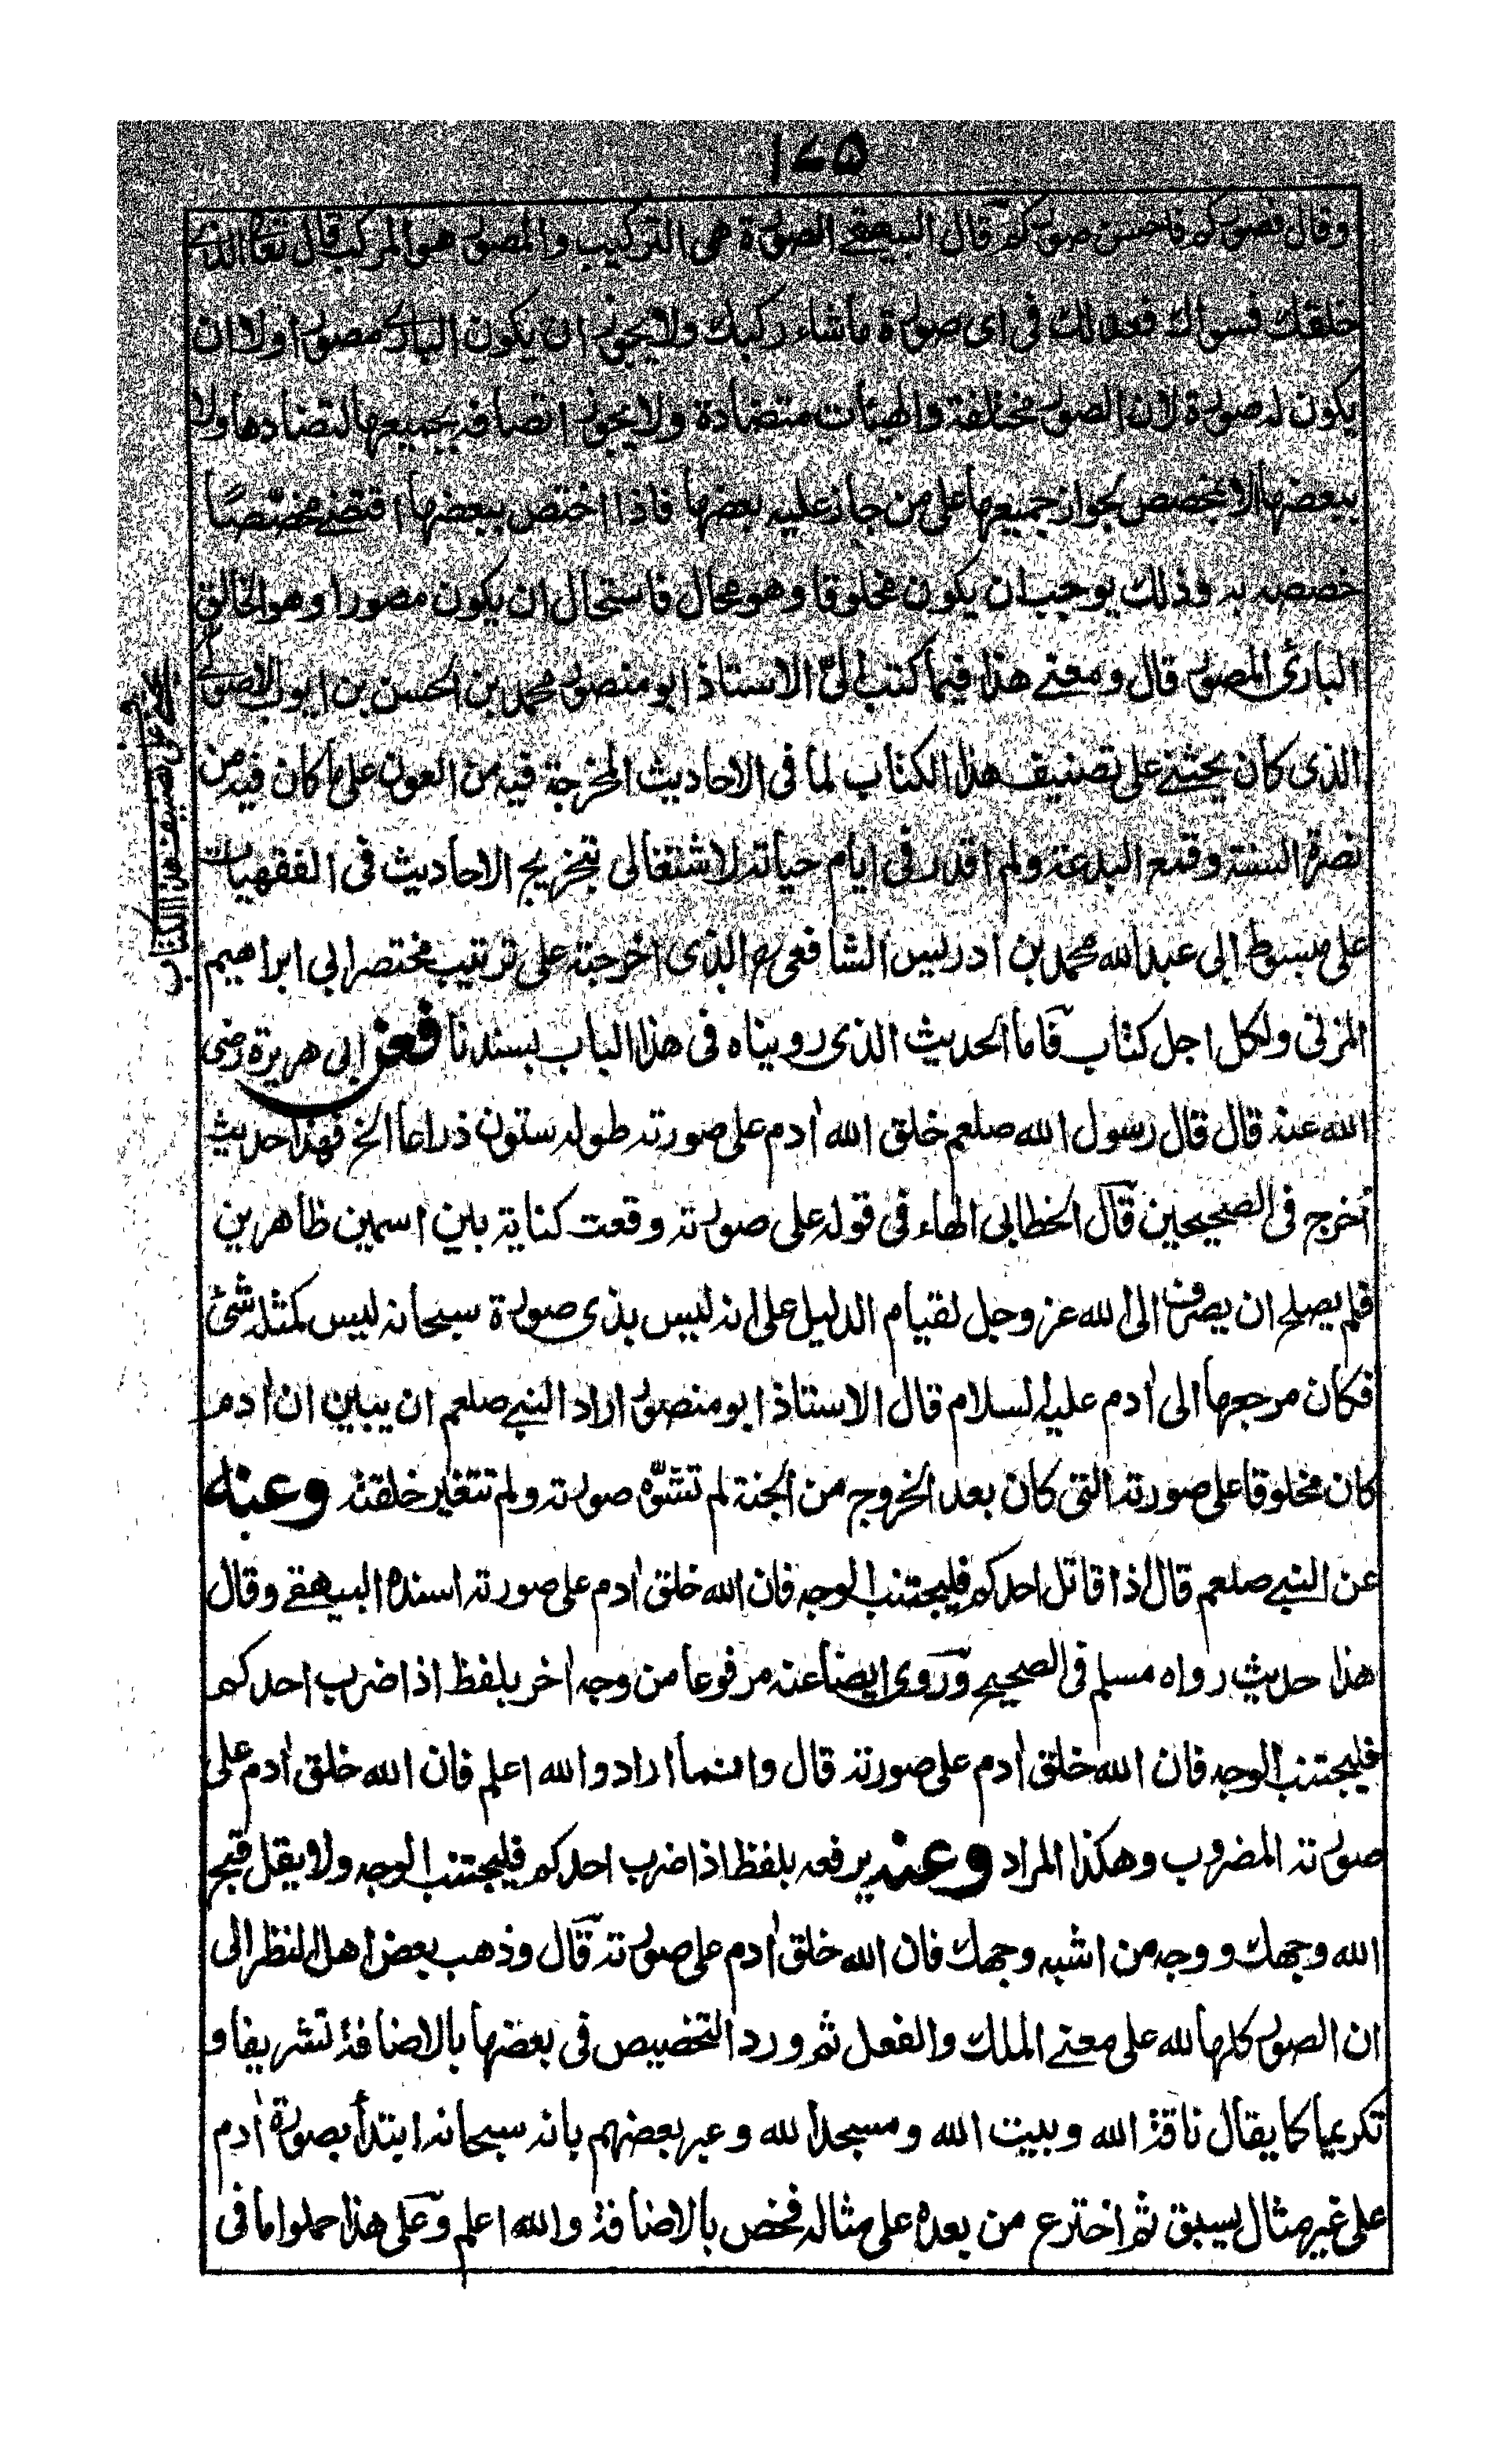 ١٧٥
وقال فصوركم فاحسن صوركم قال البيهقي الصورة هي التركيب والمصور هو المركب قال تعالى الذي
خلقك فسواك فعدلك في اى صورة ما شاء ركبك ولا يجوز ان يكون البارى مصورا ولا ان
يكون له صورة لان الصور مختلفة والهيئات متضادة ولا يجوز اتصافه بجميعها لتضادها ولا
ببعضها الا بمخصص لجواز جميعها على من جاز عليه بعضها فاذا اختص ببعضها اقتضى مخصصا
خصصه به وذلك يوجب ان يكون مخلوقا وهو محال فاستحال ان يكون مصورا وهو الخالق
البارئ المصور قال ومعنى هذا فيما كتب الىّ الاستاذ ابو منصور محمد بن الحسن بن ايوب الاصولى
الذى كان يحثني على تصنيف هذا الكتاب لما فى الاحاديث المخرجة فيه من العون على ما كان فيه من
نصرة السنة وقمع البدعة ولم اقدر فى ايام حياته لاشتغالى بتخريج الاحاديث فى الفقهيات
على مبسوط ابى عبد الله محمد بن ادريس الشافعى رح الذى اخرجته على ترتيب مختصر ابى ابراهيم
المزنى ولكل اجل كتاب فاما الحديث الذى رويناه فى هذا الباب بسندنا فعن ابى هريرة رضى
الله عنه قال قال رسول الله صلعم خلق الله اٰدم على صورته طوله ستون ذراعا الخ فهذا حديث
أخرج فى الصحيحين قال الخطابى الهاء فى قوله على صورته وقعت كناية بين اسمين ظاهرين
فلم يصلح ان يصرف الى الله عز وجل لقيام الدليل على انه ليس بذى صورة سبحانه ليس كمثله شئ
فكان مرجعها الى اٰدم عليه السلام قال الاستاذ ابو منصور اراد النبي صلعم ان يبين ان اٰدم
كان مخلوقا على صورته التى كان بعد الخروج من الجنة لم تشوّه صورته ولم تتغير خلقته وعنه
عن النبي صلعم قال اذا قاتل احدكم فليجتنب الوجه فان الله خلق اٰدم على صورته اسنده البيهقي وقال
هذا حديث رواه مسلم فى الصحيح وروى ايضا عنه مرفوعا من وجه اٰخر بلفظ اذا ضرب احدكم
فليجتنب الوجه فان الله خلق اٰدم على صورته قال وانما اراد والله اعلم فان الله خلق اٰدم على
صورته المضروب وهكذا المراد وعنه يرفعه بلفظ اذا ضرب احدكم فليجتنب الوجه ولا يقل قبح
الله وجهك ووجه من اشبه وجهك فان الله خلق اٰدم على صورته قال وذهب بعض اهل النظر الى
ان الصور كلها لله على معنى الملك والفعل ثم ورد التخصيص فى بعضها بالاضافة تشريفا و
تكريما كما يقال ناقة الله وبيت الله ومسجد الله وعبر بعضهم بانه سبحانه ابتدأ بصورة اٰدم
على غير مثال يسبق ثم اخترع من بعده على مثاله فخص بالاضافة والله اعلم وعلى هذا حملوا ما فى